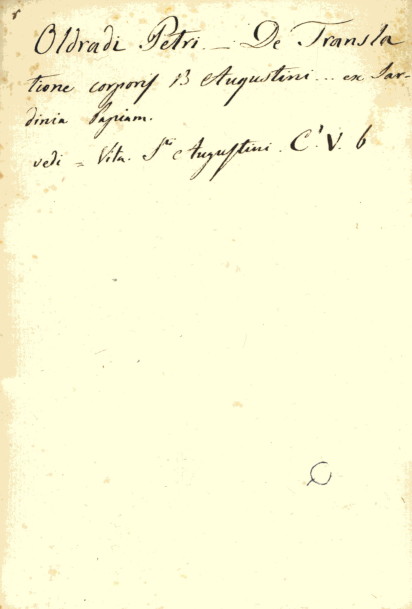 Oldradi Petri — De Transla
tione corporis B Augustini... ex Sar-
dinia Papiam.
vedi = Vita. Sti Augustini. C. V. 6